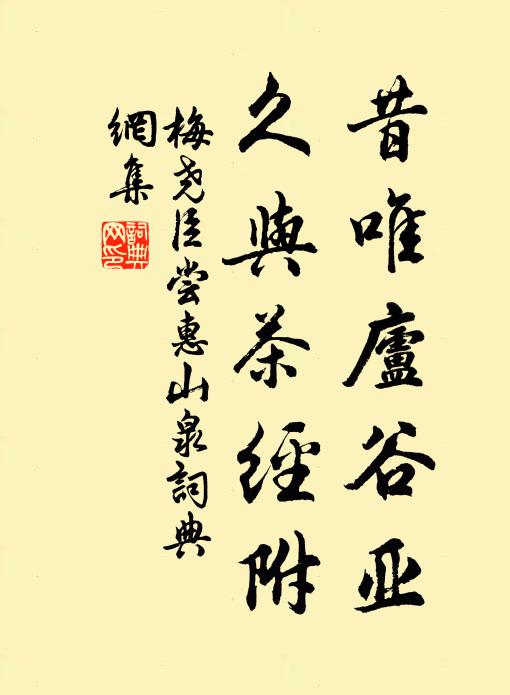 昔唯廬谷亚
久與茶經附
梅尧臣尝惠山泉詞典
網集
詞典
网印